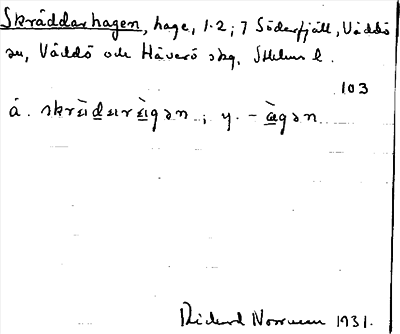 Skräddarhagen, hage, 1.2; 7 Söderfjäll, Väddö
sn, Väddö och Häverö skg, Sthlms l.
103
ä. skrèdarègən; y. -àgən
Rickard Norrman 1931.